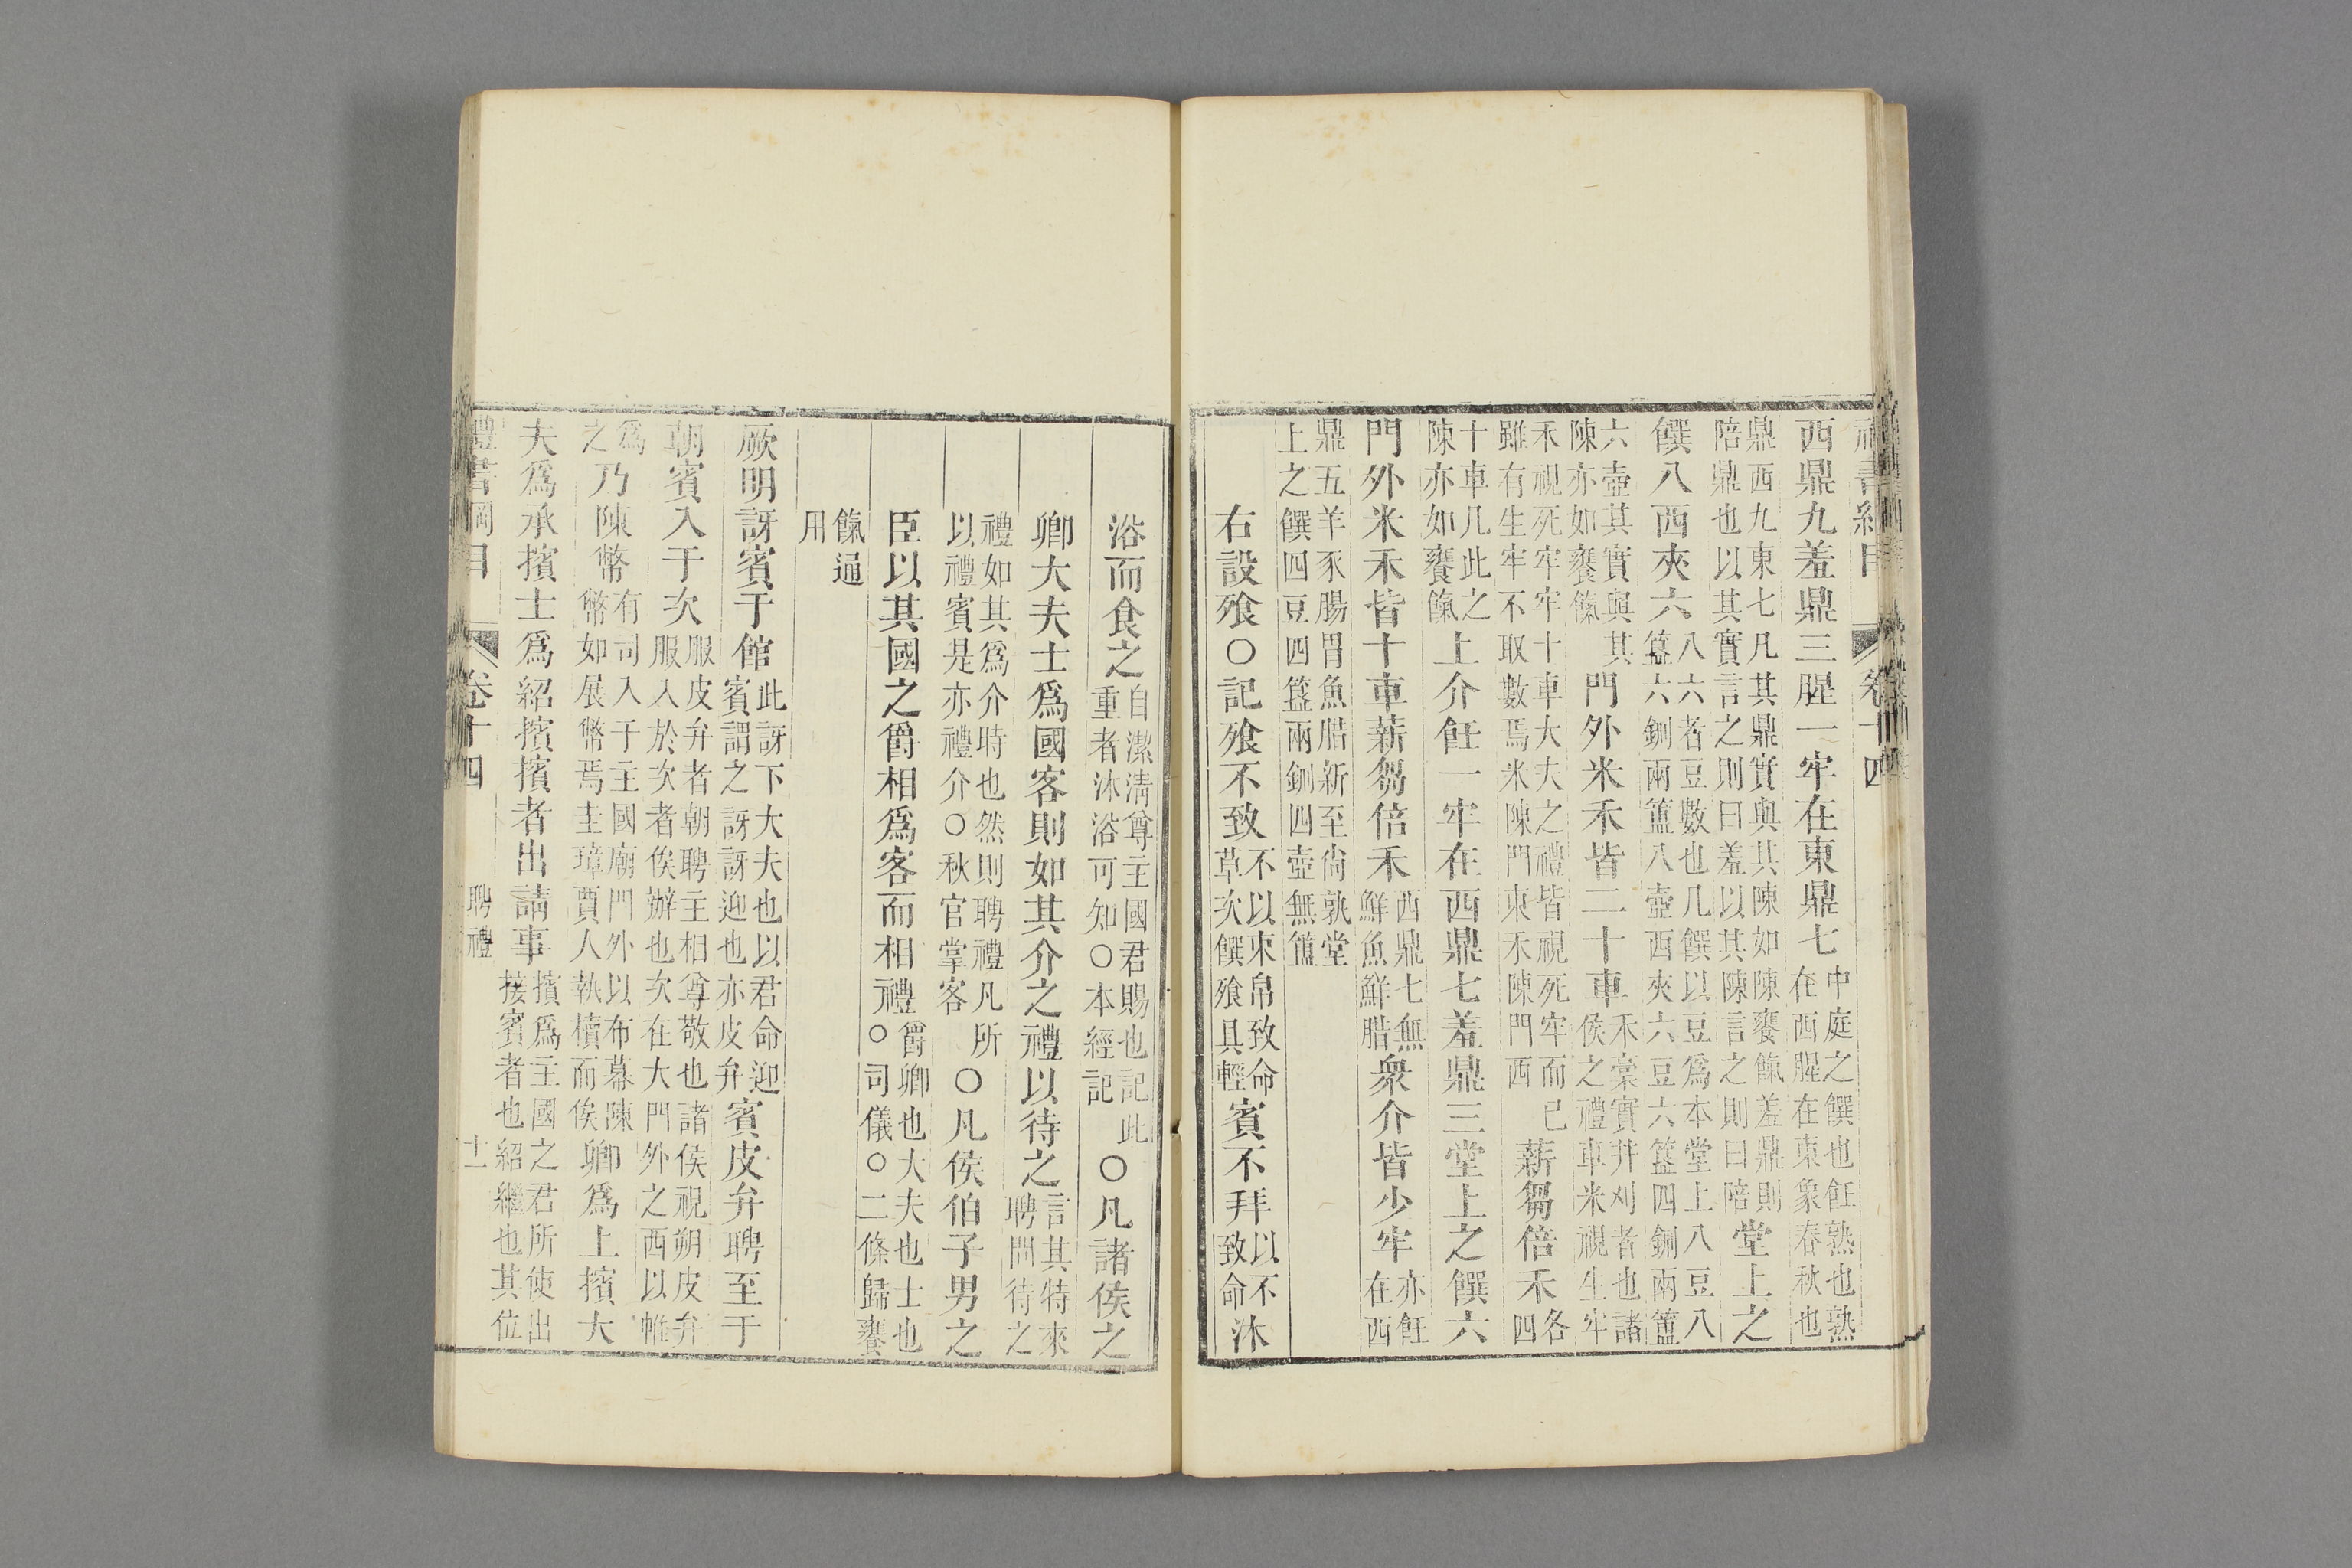 禮書綱目 卷十四
西鼎九羞鼎三腥一牢在東鼎七中庭之饌也飪熟也熟在西腥在東象春秋也
鼎西九東七凡其鼎實與其陳如陳饔餼羞鼎則陪鼎也以其實言之則曰羞以其陳言之則曰陪堂上之
饌八西夾六八六者豆數也凡饌以豆爲本堂上八豆八簋六鉶兩簠八壺西夾六豆六簋四鉶兩簠
六壺其實與其陳亦如饔餼門外米禾皆二十車禾稾實幷刈者也諸侯之禮車米視生牢
禾視死牢牢十車大夫之禮皆視死牢而已雖有生牢不取數焉米陳門東禾陳門西薪芻倍禾各四
十車凡此之陳亦如饔餼上介飪一牢在西鼎七羞鼎三堂上之饌六
門外米禾皆十車薪芻倍禾西鼎七無鮮魚鮮腊衆介皆少牢亦飪在西
鼎五羊豕腸胃魚腊新至尚孰堂上之饌四豆四簋兩鉶四壺無簠
右設飱○記飱不致不以束帛致命草次饌飱具輕賓不拜以不致命沐
浴而食之自潔清尊主國君賜也記此重者沐浴可知○本經記○凡諸侯之
卿大夫士爲國客則如其介之禮以待之言其特來聘問待之
禮如其爲介時也然則聘禮凡所以禮賓是亦禮介○秋官掌客○凡侯伯子男之
臣以其國之爵相爲客而相禮爵卿也大夫也士也○司儀○二條歸饔
餼通用
厥明訝賓于館此訝下大夫也以君命迎賓謂之訝訝迎也亦皮弁賓皮弁聘至于
朝賓入于次服皮弁者朝聘主相尊敬也諸侯視朔皮弁服入於次者俟辦也次在大門外之西以帷
爲之乃陳幣有司入于主國廟門外以布幕陳幣如展幣焉圭璋賈人執櫝而俟卿爲上擯大
夫爲承擯士爲紹擯擯者出請事擯爲主國之君所使出接賓者也紹繼也其位
禮書綱目 卷十四 聘禮 十一